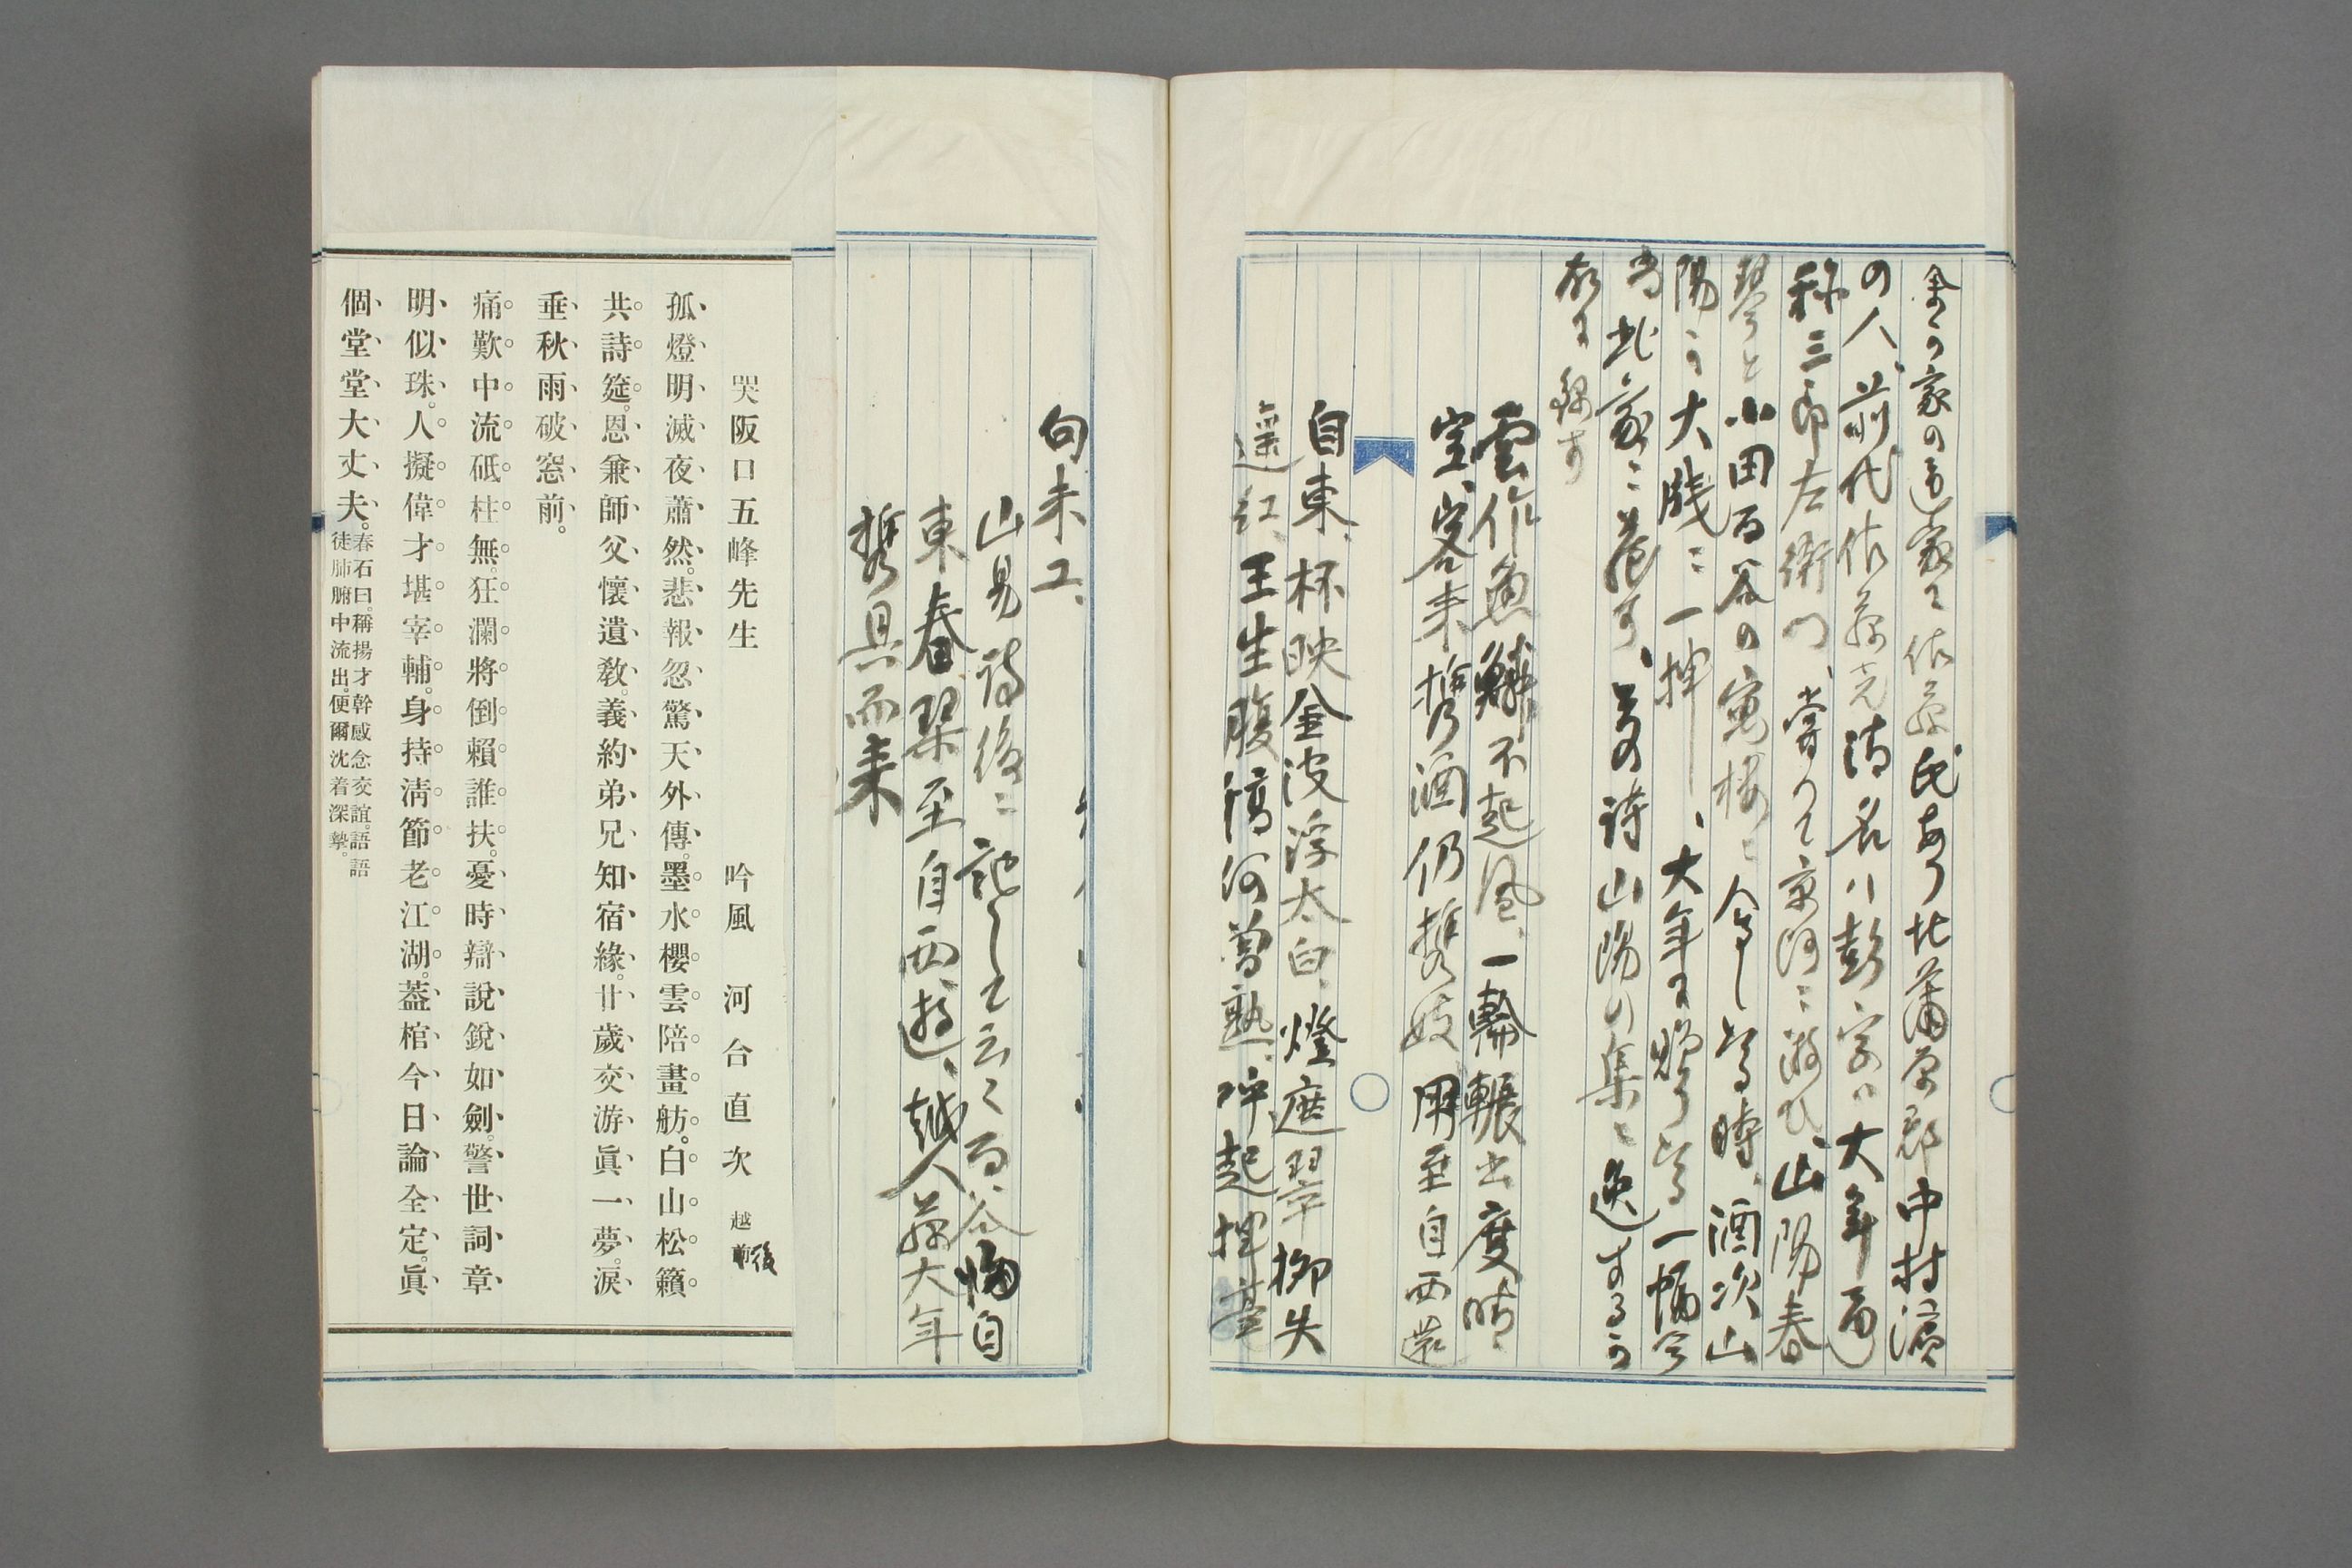 余の家の遠家に佐藤氏あり北蒲原郡中村濱
の人、前代佐藤克清名ハ彭字ハ大年通
称三郎左衛門、嘗つて京河ニ游ひ、山陽春
琴らと小田百谷の寓楼に會し時、酒次山
陽の大牋ニ一揮し、大年に贈りし一幅今
尚此家ニ蔵す、その詩山陽の集に逸するか
故に録す
雲作魚鱗不起風、一輪輾出度晴
空、客来携酒仍携妓、周至自西還
自東、杯映金波浮太白、燈遮翠柳失
遥紅、王生腹稿何曽熟、呼起揮毫
句未工、
山易詩後ニ記して云く百谷悔自
東春琴至自西遊、越人藤大年
携具而来
哭阪口五峰先生
吟風 河台直次 越前後
孤燈明滅夜蕭然。悲報忽驚天外傳。墨水櫻雲陪畫舫。白山松籟
共詩筵。恩兼師父懷遺敎。義約弟兄知宿緣。廿歲交游眞一夢。淚
垂秋雨破窓前。
痛歎中流砥柱無。狂瀾將倒賴誰扶。憂時辯說銳如劍。警世詞章
明似珠。人擬偉才堪宰輔。身持淸節老江湖。蓋棺今日論全定。眞
個堂堂大丈夫。春石曰。稱揚才幹感念交誼。語語
徒肺腑中流出。便爾沈着深摯。